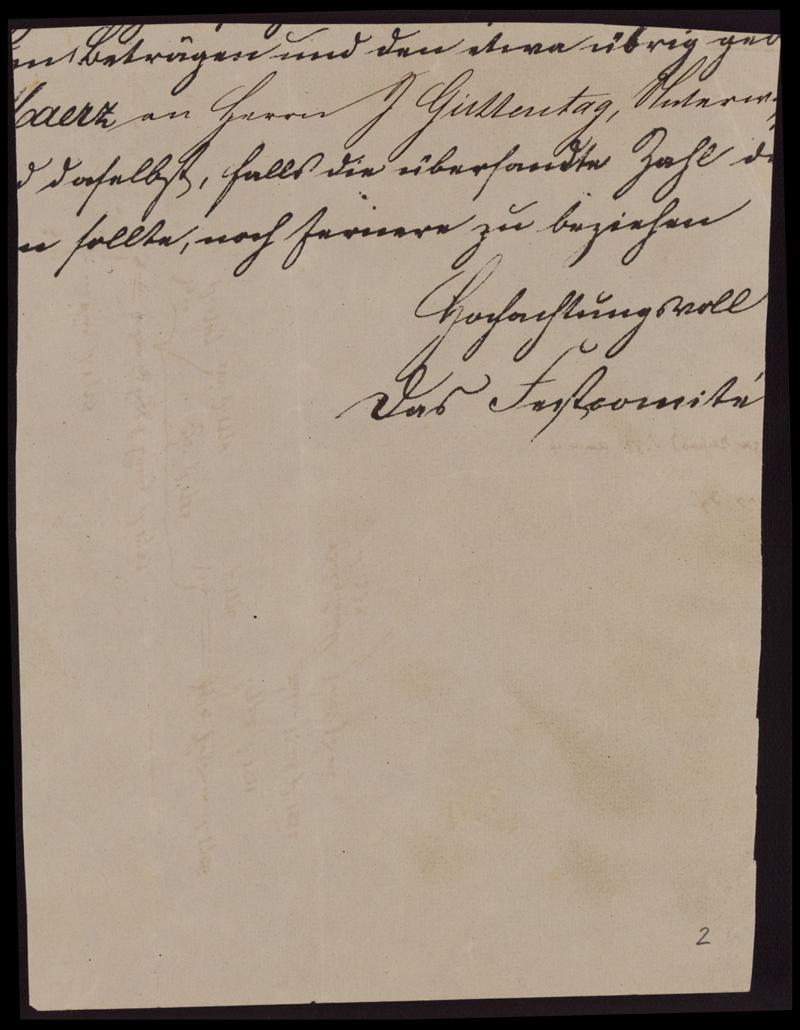 en Beträgen und den etwa übrig ge
Maerz an Herrn J Guttentag, Unterw
d daselbst, falls die übersandte Zahl
n sollte, noch fernere zu beziehen
Hochachtungsvoll
Das Festcomité
2